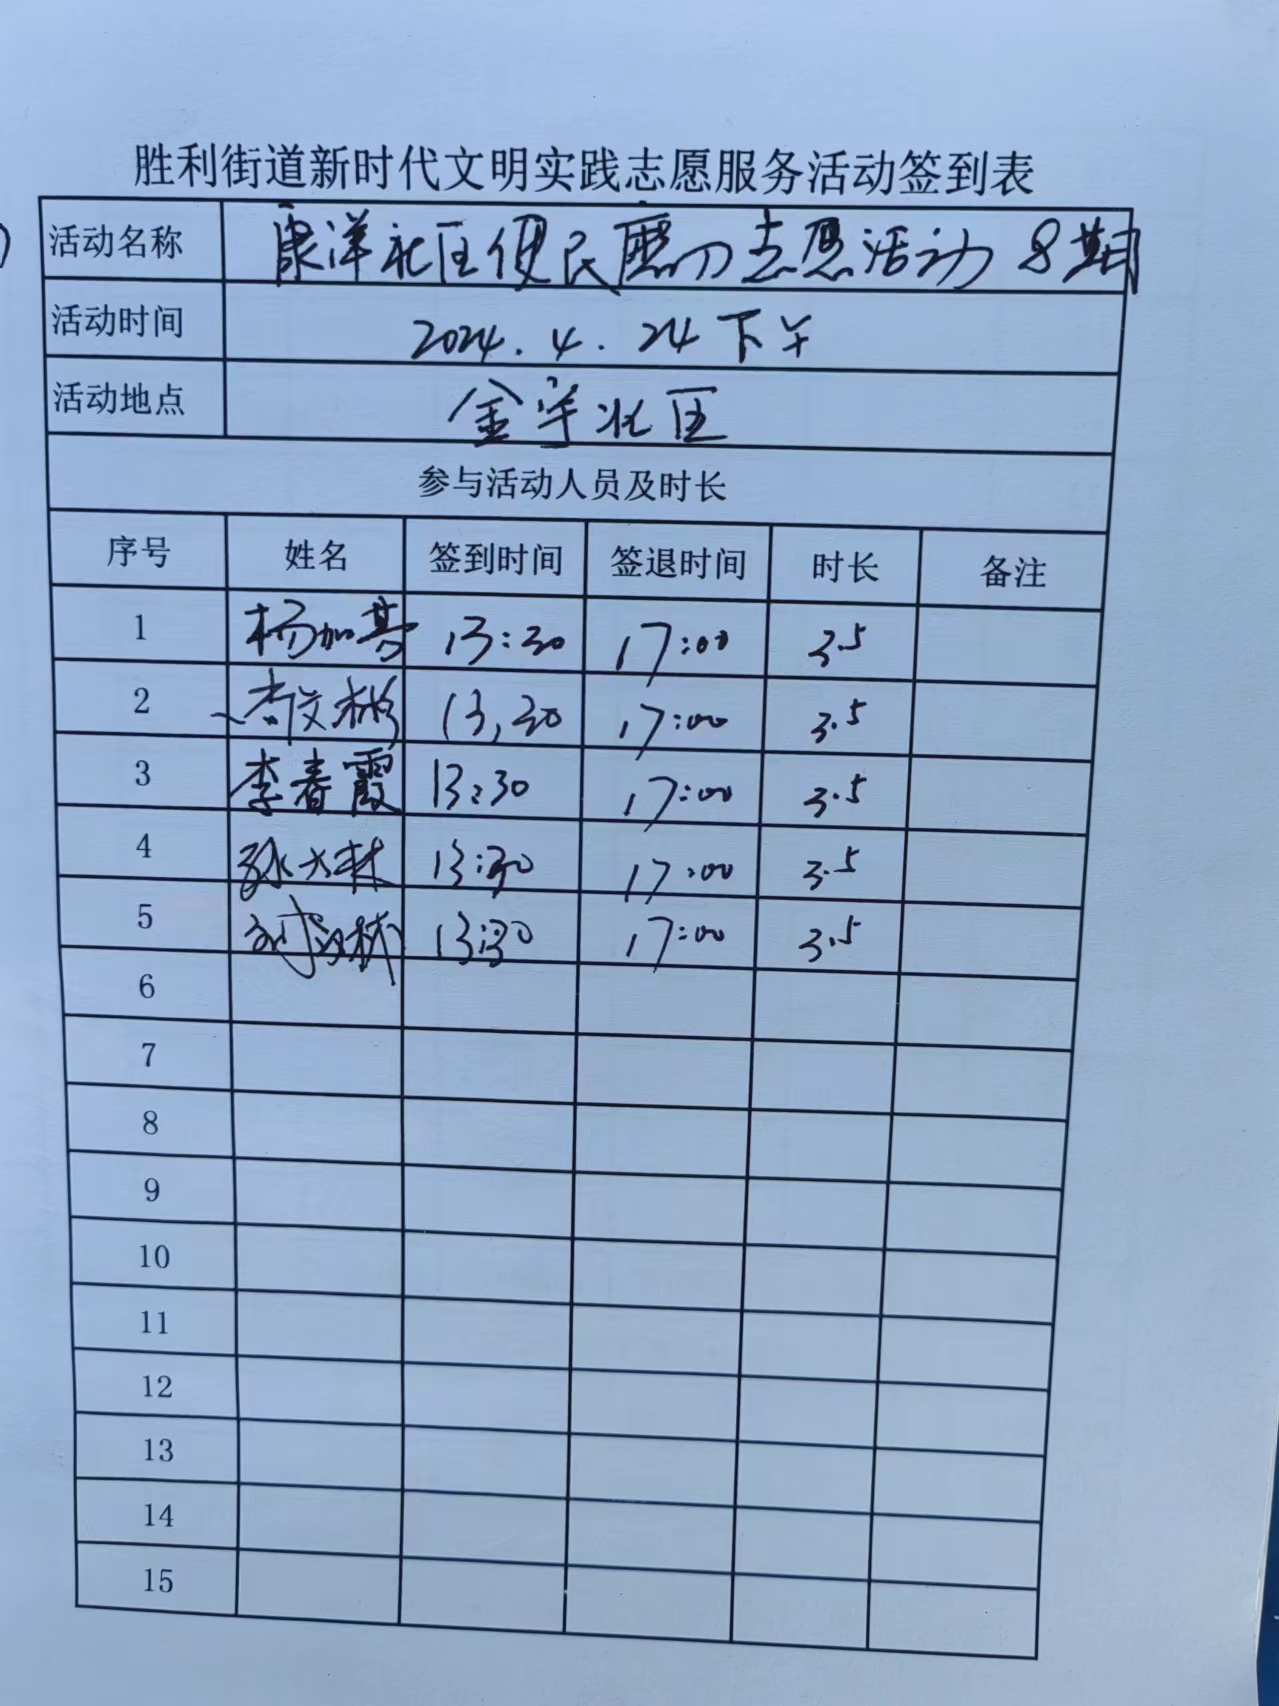 胜利街道新时代文明实践志愿服务活动签到表
活动名称 康洋社区便民磨刀志愿活动 8期
活动时间 2024.4.24下午
活动地点 金宇社区
参与活动人员及时长
序号 姓名 签到时间 签退时间 时长 备注
1 杨加 13:30 17:00 3.5
2 13,30 17:00 3.5
3 李春霞 13:30 17:00 3.5
4 孙大林 13:30 17:00 3.5
5 刘汉林 13:30 17:00 3.5
6
7
8
9
10
11
12
13
14
15